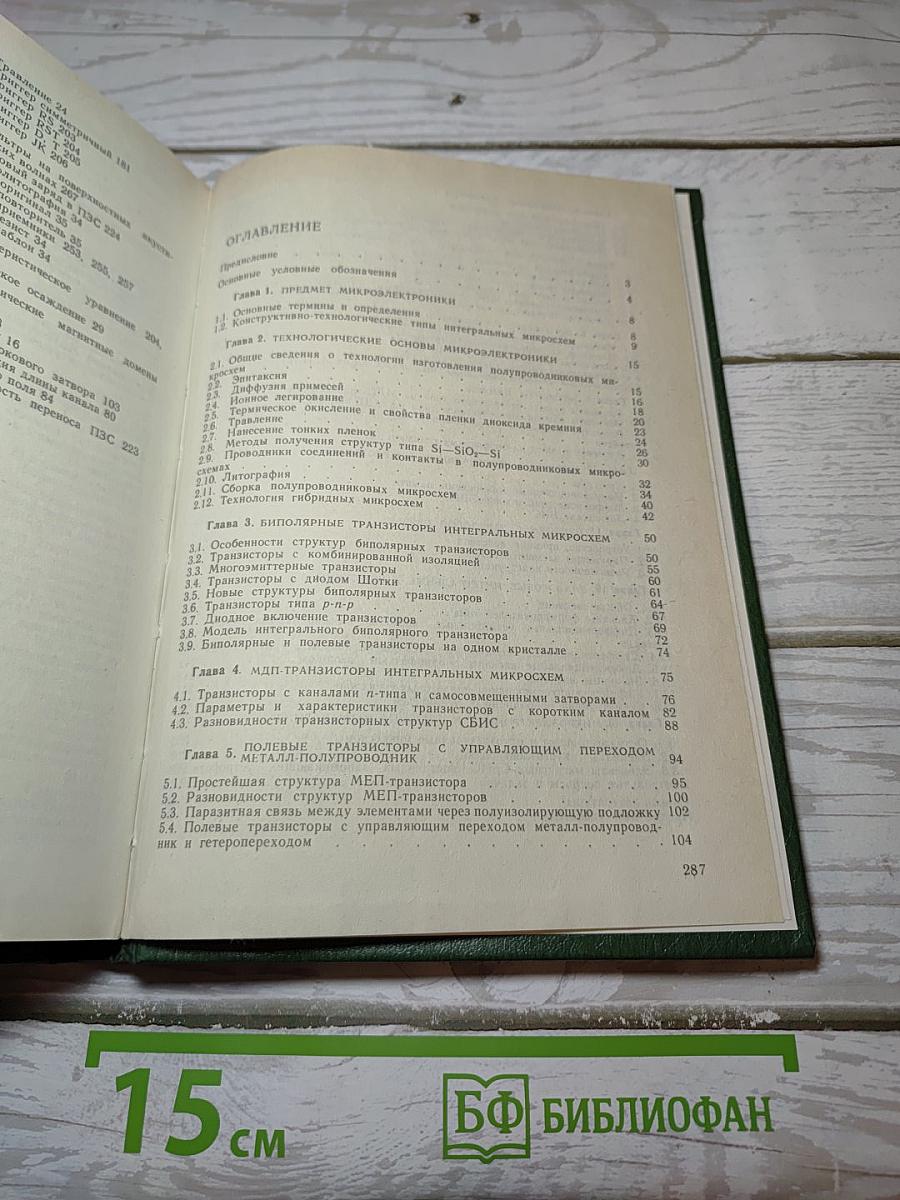 травление 24
риггер симметричный 181
риггер RS 203
риггер RST 204
иггер D и T 205
иггер JK 206
льтры на поверхностных акусти-
ких волнах 267
овый заряд в ПЗС 224
литография 34
оригинал 35
повторитель 35
приемники 253, 255, 257
езист 34
аблон 34
еристическое уравнение 204,
ское осаждение 29
ические магнитные домены
16
окового затвора 103
ия длины канала 80
о поля 84
ость переноса ПЗС 223
ОГЛАВЛЕНИЕ
Предисловие . . . 3
Основные условные обозначения . . . 4
Глава 1. ПРЕДМЕТ МИКРОЭЛЕКТРОНИКИ . . . 8
1.1. Основные термины и определения . . . 8
1.2. Конструктивно-технологические типы интегральных микросхем . 9
Глава 2. ТЕХНОЛОГИЧЕСКИЕ ОСНОВЫ МИКРОЭЛЕКТРОНИКИ . . 15
2.1. Общие сведения о технологии изготовления полупроводниковых ми-
кросхем . . . 15
2.2. Эпитаксия . . . 16
2.3. Диффузия примесей . . . 18
2.4. Ионное легирование . . . 20
2.5. Термическое окисление и свойства пленки диоксида кремния . 23
2.6. Травление . . . 24
2.7. Нанесение тонких пленок . . . 26
2.8. Методы получения структур типа Si—SiO₂—Si . . . 30
2.9. Проводники соединений и контакты в полупроводниковых микро-
схемах . . . 32
2.10. Литография . . . 34
2.11. Сборка полупроводниковых микросхем . . . 40
2.12. Технология гибридных микросхем . . . 42
Глава 3. БИПОЛЯРНЫЕ ТРАНЗИСТОРЫ ИНТЕГРАЛЬНЫХ МИКРОСХЕМ 50
3.1. Особенности структур биполярных транзисторов . . . 50
3.2. Транзисторы с комбинированной изоляцией . . . 55
3.3. Многоэмиттерные транзисторы . . . 60
3.4. Транзисторы с диодом Шотки . . . 61
3.5. Новые структуры биполярных транзисторов . . . 64
3.6. Транзисторы типа p-n-p . . . 67
3.7. Диодное включение транзисторов . . . 69
3.8. Модель интегрального биполярного транзистора . . . 72
3.9. Биполярные и полевые транзисторы на одном кристалле . . . 74
Глава 4. МДП-ТРАНЗИСТОРЫ ИНТЕГРАЛЬНЫХ МИКРОСХЕМ . . . 75
4.1. Транзисторы с каналами n-типа и самосовмещенными затворами . . 76
4.2. Параметры и характеристики транзисторов с коротким каналом 82
4.3. Разновидности транзисторных структур СБИС . . . 88
Глава 5. ПОЛЕВЫЕ ТРАНЗИСТОРЫ С УПРАВЛЯЮЩИМ ПЕРЕХОДОМ
МЕТАЛЛ-ПОЛУПРОВОДНИК . . . 94
5.1. Простейшая структура МЕП-транзистора . . . 95
5.2. Разновидности структур МЕП-транзисторов . . . 100
5.3. Паразитная связь между элементами через полуизолирующую подложку 102
5.4. Полевые транзисторы с управляющим переходом металл-полупровод-
ник и гетеропереходом . . . 104
287
15 см
БФ БИБЛИОФАН